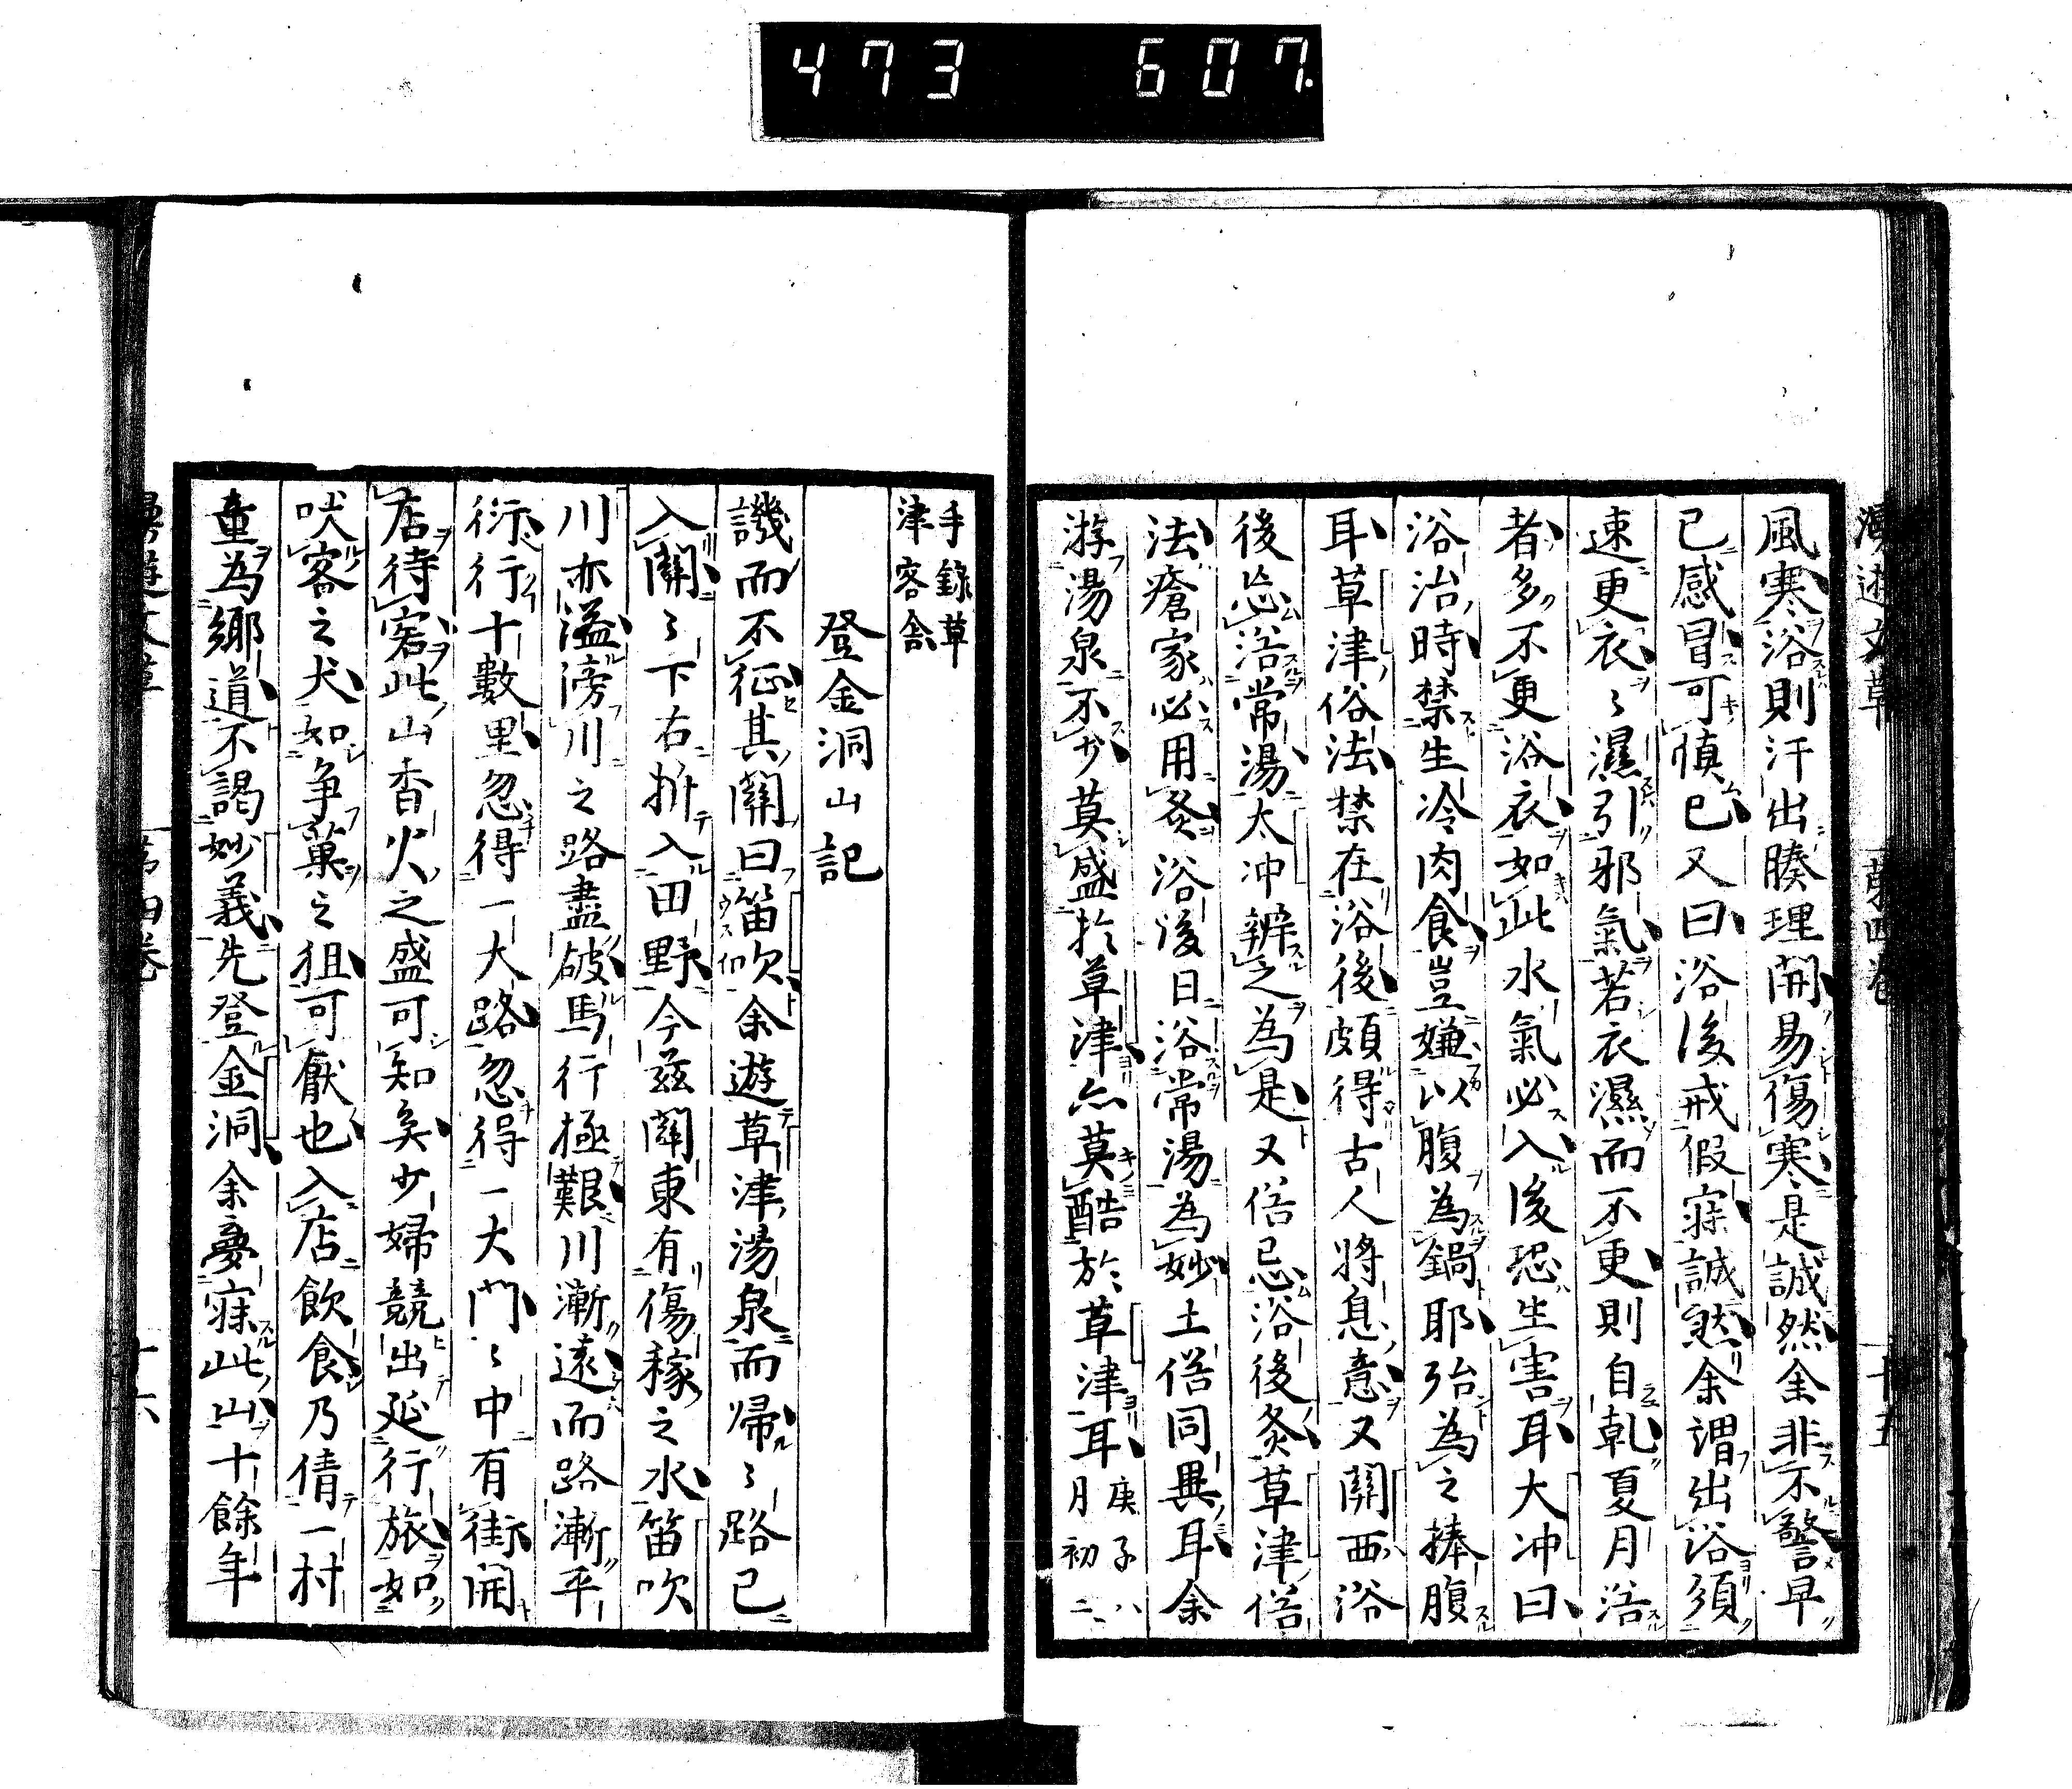 473 607.
漫遊文草 第四卷 十五
風寒浴則汗出腠理開易傷寒是誠然余非不警早
已感冒可慎已又曰浴後戒假寐誠然余謂出浴須
速更衣〻濕引邪氣若衣濕而不更則自乾夏月浴
者多不更浴衣如此水氣必入後恐生害耳大冲曰
浴治時禁生冷肉食豈嫌以腹為鍋耶殆為之捧腹
耳草津俗法禁在浴後頗得古人將息意又關西浴
後忌浴常湯太冲辨之為是又俗忌浴後灸草津俗
法瘡家必用灸浴後日浴常湯為妙土俗同異耳余
游湯泉不少莫盛於草津亦莫酷於草津耳庚子八
月初二
手錄草
津客舍
登金洞山記
譏而不征其關曰笛吹余遊草津湯泉而帰〻路已
入關〻下右折入田野今茲關東有傷稼之水笛吹
川亦溢滂川之路盡破馬行極艱川漸遠而路漸平
衍行十數里忽得一大路忽得一大門〻中有街開
店待客此山香火之盛可知矣少婦競出延行旅如
吠客之犬如争菓之狙可厭也入店飲食乃倩一村
童為鄉道不謁妙義先登金洞余夢寐此山十餘年
漫遊文草 第四卷 十六